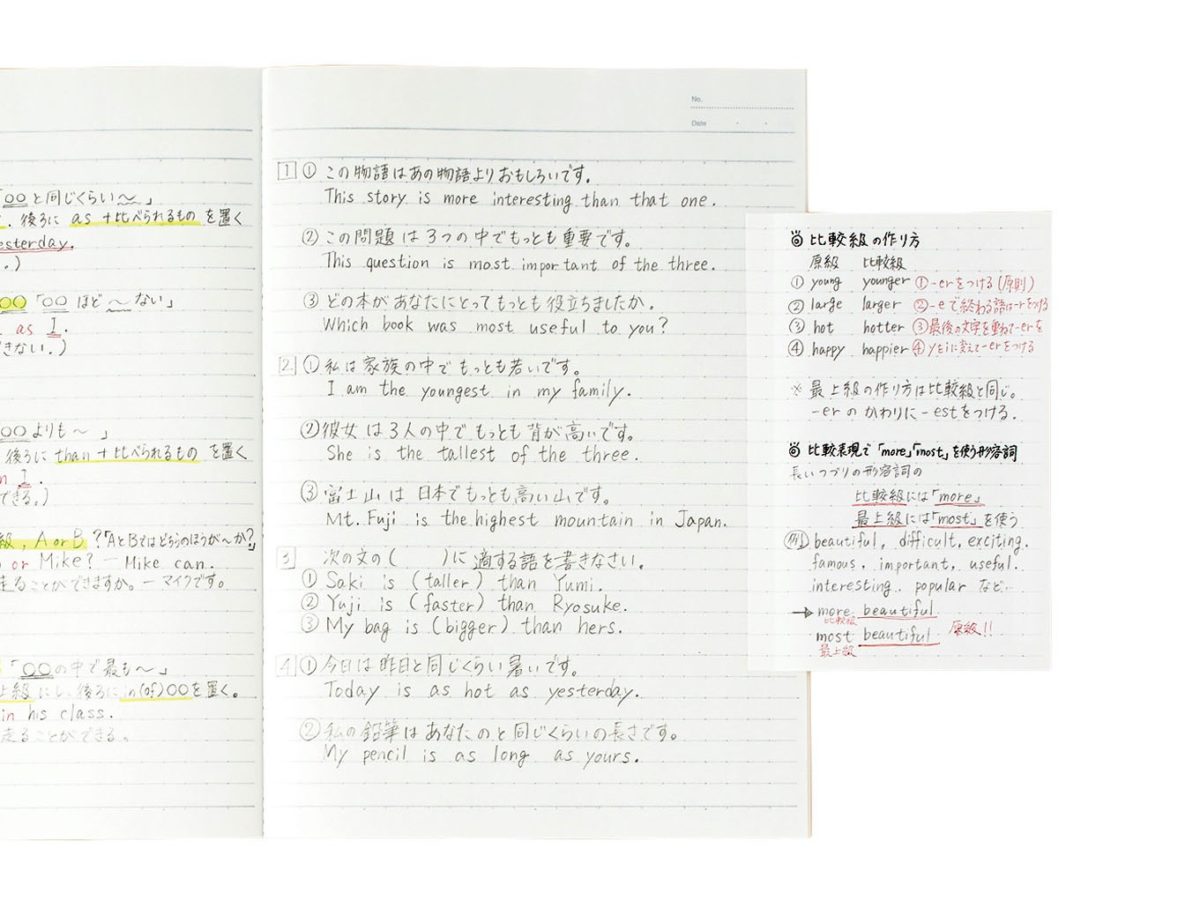 「○○と同じくらい〜」
後ろに as +比べられるもの を置く
esterday.
.)
○○「○○ ほど 〜 ない」
as I.
きない.)
○○ よりも〜 」
後ろに than + 比べられるもの を置く
n I.
できる.)
級, A or B ?「AとBではどちらのほうが〜か?」
or Mike? — Mike can.
走ることができますか。— マイクです。
「○○の中で最も〜」
上級 にし、後ろに in(of)○○を置く。
in his class.
走ることができる。
No.
Date
1 ① この物語はあの物語よりおもしろいです。
This story is more interesting than that one.
② この問題は3つの中でもっとも重要です。
This question is most important of the three.
③ どの本があなたにとってもっとも役立ちましたか.
Which book was most useful to you?
2 ① 私は家族の中でもっとも若いです。
I am the youngest in my family.
② 彼女は3人の中でもっとも背が高いです。
She is the tallest of the three.
③ 富士山は日本でもっとも高い山です。
Mt. Fuji is the highest mountain in Japan.
3 次の文の( )に適する語を書きなさい.
① Saki is (taller) than Yumi.
② Yuji is (faster) than Ryosuke.
③ My bag is (bigger) than hers.
4 ① 今日は昨日と同じくらい暑いです。
Today is as hot as yesterday.
② 私の鉛筆はあなたのと同じくらいの長さです。
My pencil is as long as yours.
比較級の作り方
原級 比較級
① young younger ①-erをつける(原則)
② large larger ②-eで終わる語は-rをつける
③ hot hotter ③最後の文字を重ねて-erを
④ happy happier ④yをiに変えて-erをつける
※ 最上級の作り方は比較級と同じ。
-erのかわりに-estをつける.
比較表現で「more」「most」を使う形容詞
長いつづりの形容詞の
比較級には「more」
最上級には「most」を使う
例 beautiful, difficult, exciting.
famous, important, useful.
interesting, popular など…
→ more beautiful
比較級
原級!!
most beautiful
最上級